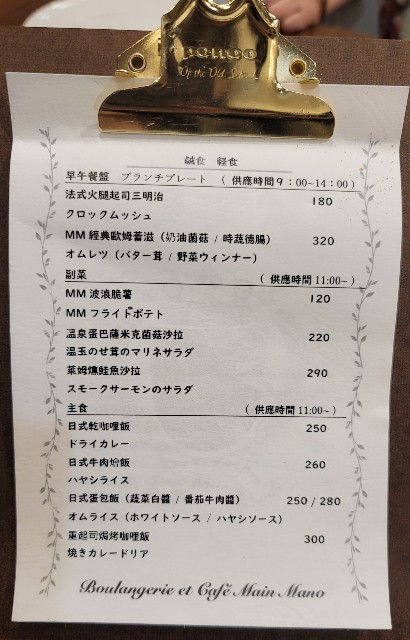 PENCO
鹹食 輕食
早午餐盤 ブランチプレート (供應時間9：00~14：00)
法式火腿起司三明治 180
クロックムッシュ
MM 經典歐姆蕃滋 (奶油菌菇 / 時蔬德腸) 320
オムレツ (バター茸 / 野菜ウィンナー)
副菜 (供應時間 11:00~)
MM 波浪脆薯 120
MM フライドポテト
溫泉蛋巴薩米克菌菇沙拉 220
温玉のせ茸のマリネサラダ
萊姆燻鮭魚沙拉 290
スモークサーモンのサラダ
主食 (供應時間 11:00~)
日式乾咖哩飯 250
ドライカレー
日式牛肉燴飯 260
ハヤシライス
日式蛋包飯 (蔬菜白醬 / 番茄牛肉醬) 250 / 280
オムライス (ホワイトソース / ハヤシソース)
重起司焗烤咖哩飯 300
焼きカレードリア
Boulangerie et Café Main Mano